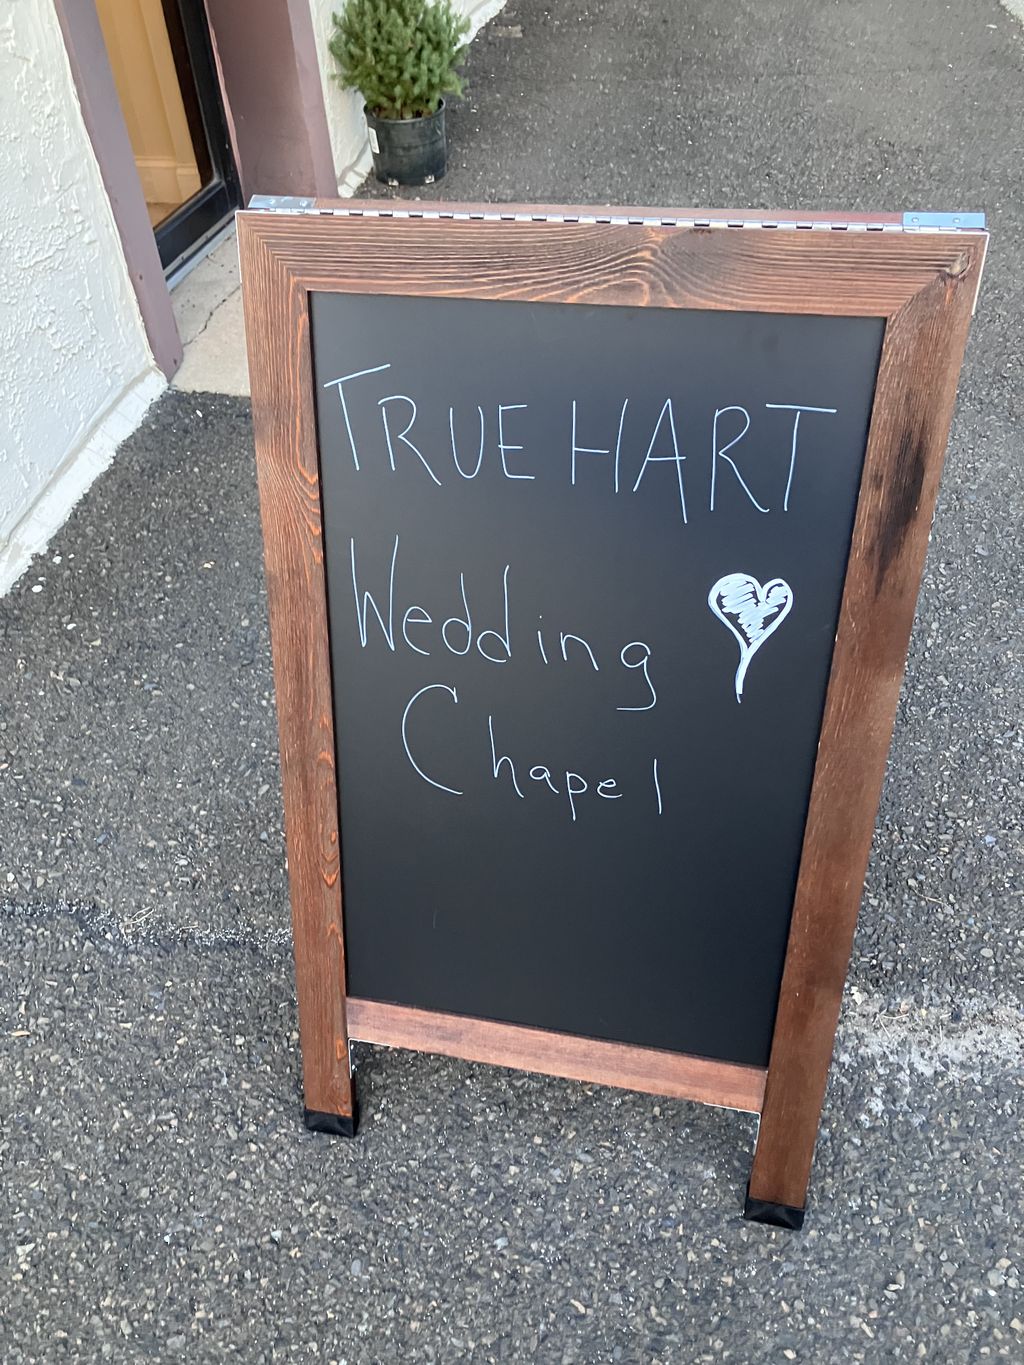 TRUE HART
Wedding
Chapel